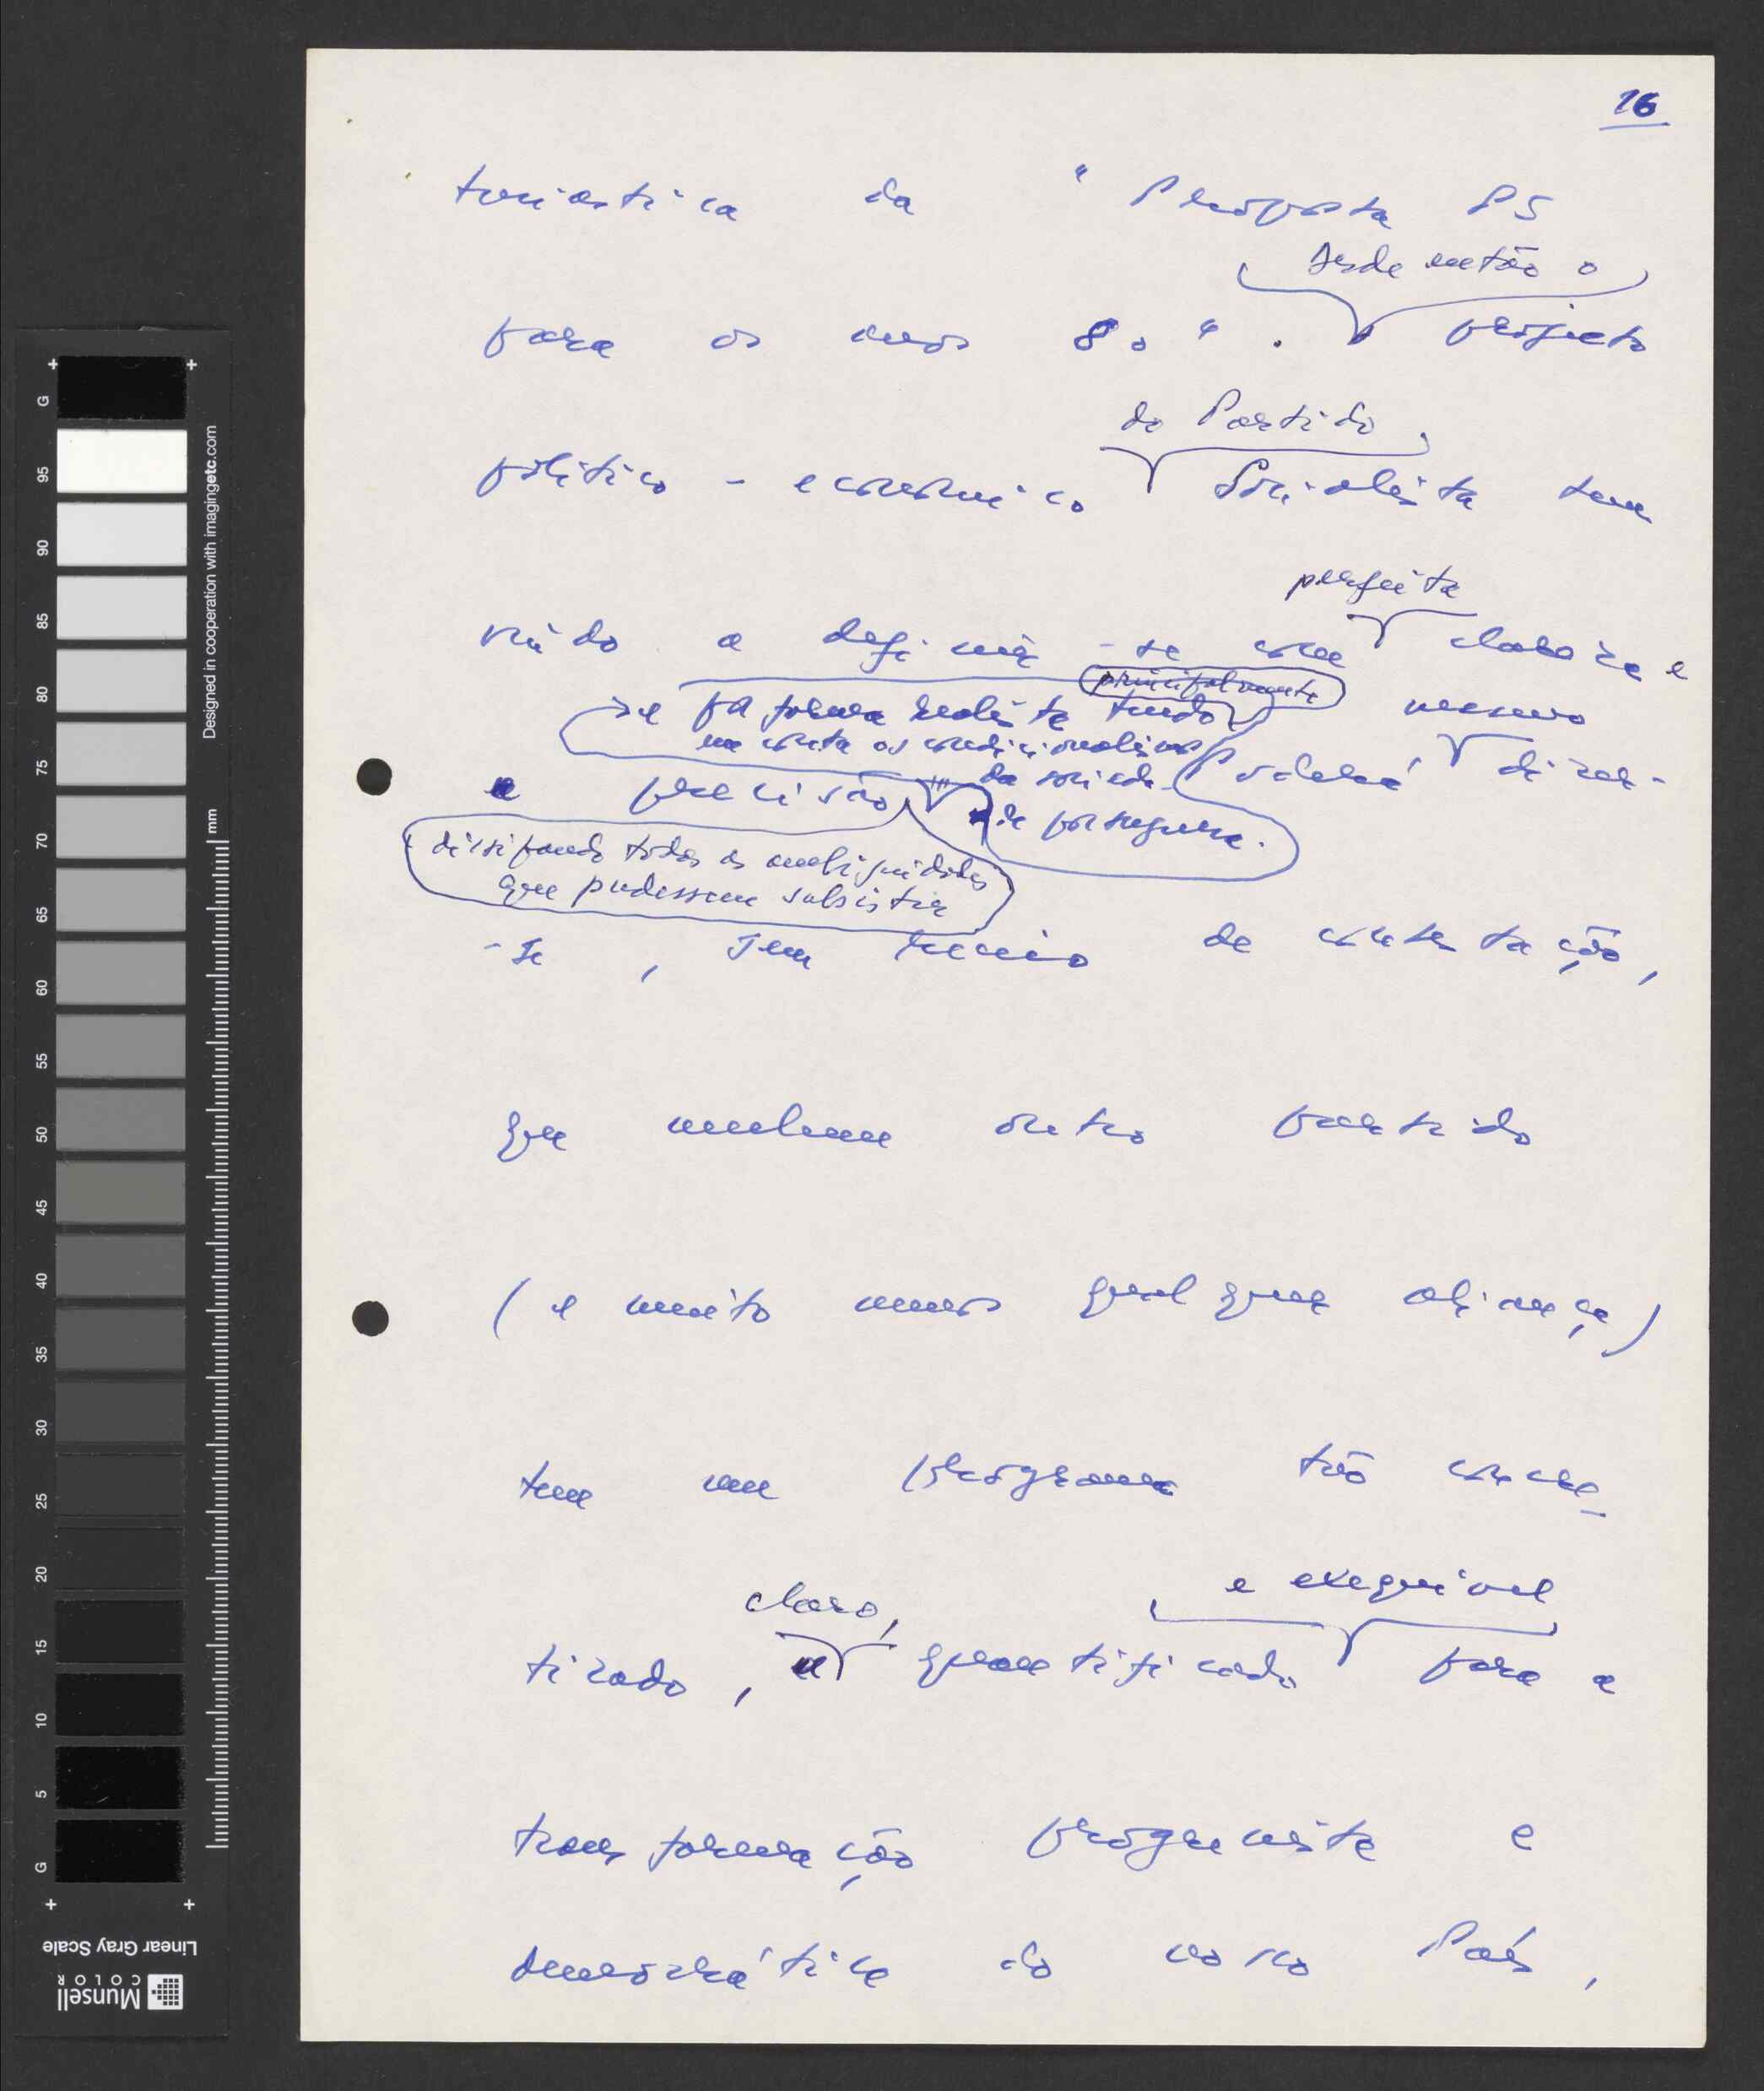 16
tusiástica da " Proposta PS
desde então o
para os anos 80 ". projecto
do Partido
político - económico Socialista tem
perfeita
vindo a definir-se com clareza e
principalmente
e de forma realista tendo mesmo
em conta os condicionalismos
e precisão da socieda- Poderá dizer-
de portuguesa.
dissipando todas as ambiguidades
que pudessem subsistir
-se, sem receio de contestação,
que nenhum outro partido
(e muito menos qualquer aliança)
tem um programa tão concre-
claro, e exequível
tizado, e quantificado para a
transformação progressista e
democrática do nosso País,
G
95
90
85
80
75
70
65
60
55
50
45
40
35
30
25
20
15
10
5
G
mm
Designed in cooperation with imagingetc.com
Linear Gray Scale
Munsell
COLOR